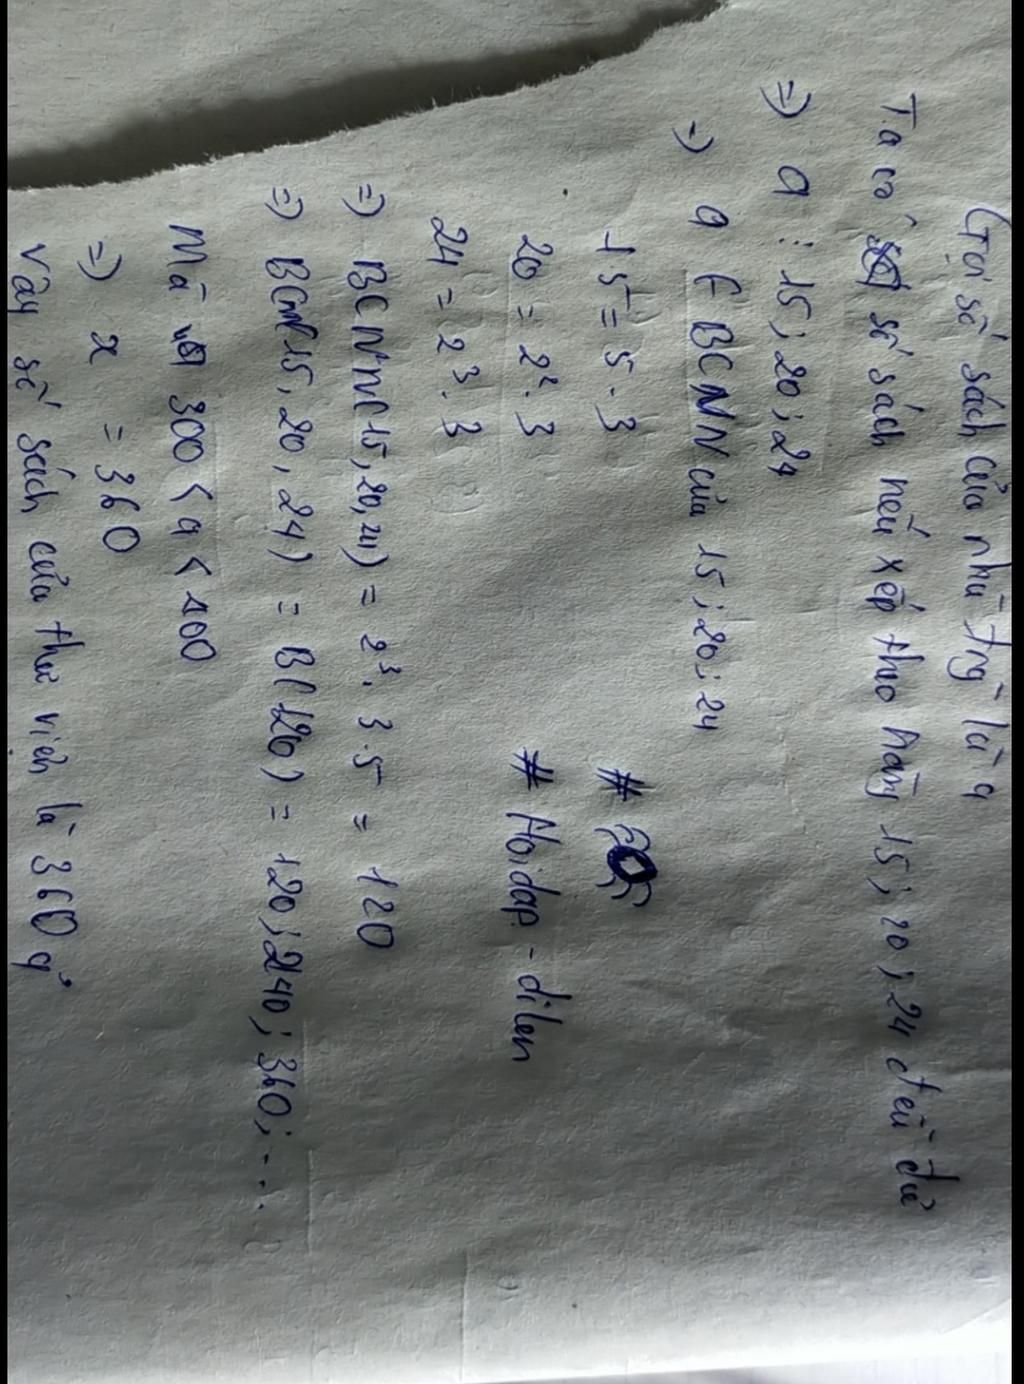 Gọi số sách của nhà trg là a
Ta có số sách nếu xếp theo hàng 15; 20; 24 đều đủ
=> a ⋮ 15; 20; 24
=> a ∈ BCNN của 15; 20; 24
15 = 5 . 3
20 = 2². 3
24 = 2³. 3
#
# Hoidap - dilen
=> BCNN(15, 20, 24) = 2³. 3 . 5 = 120
=> BCNN(15, 20, 24) = B(120) = 120; 240; 360; ...
Mà 300 < a < 400
=> x = 360
Vậy số sách của thư viện là 360 q'